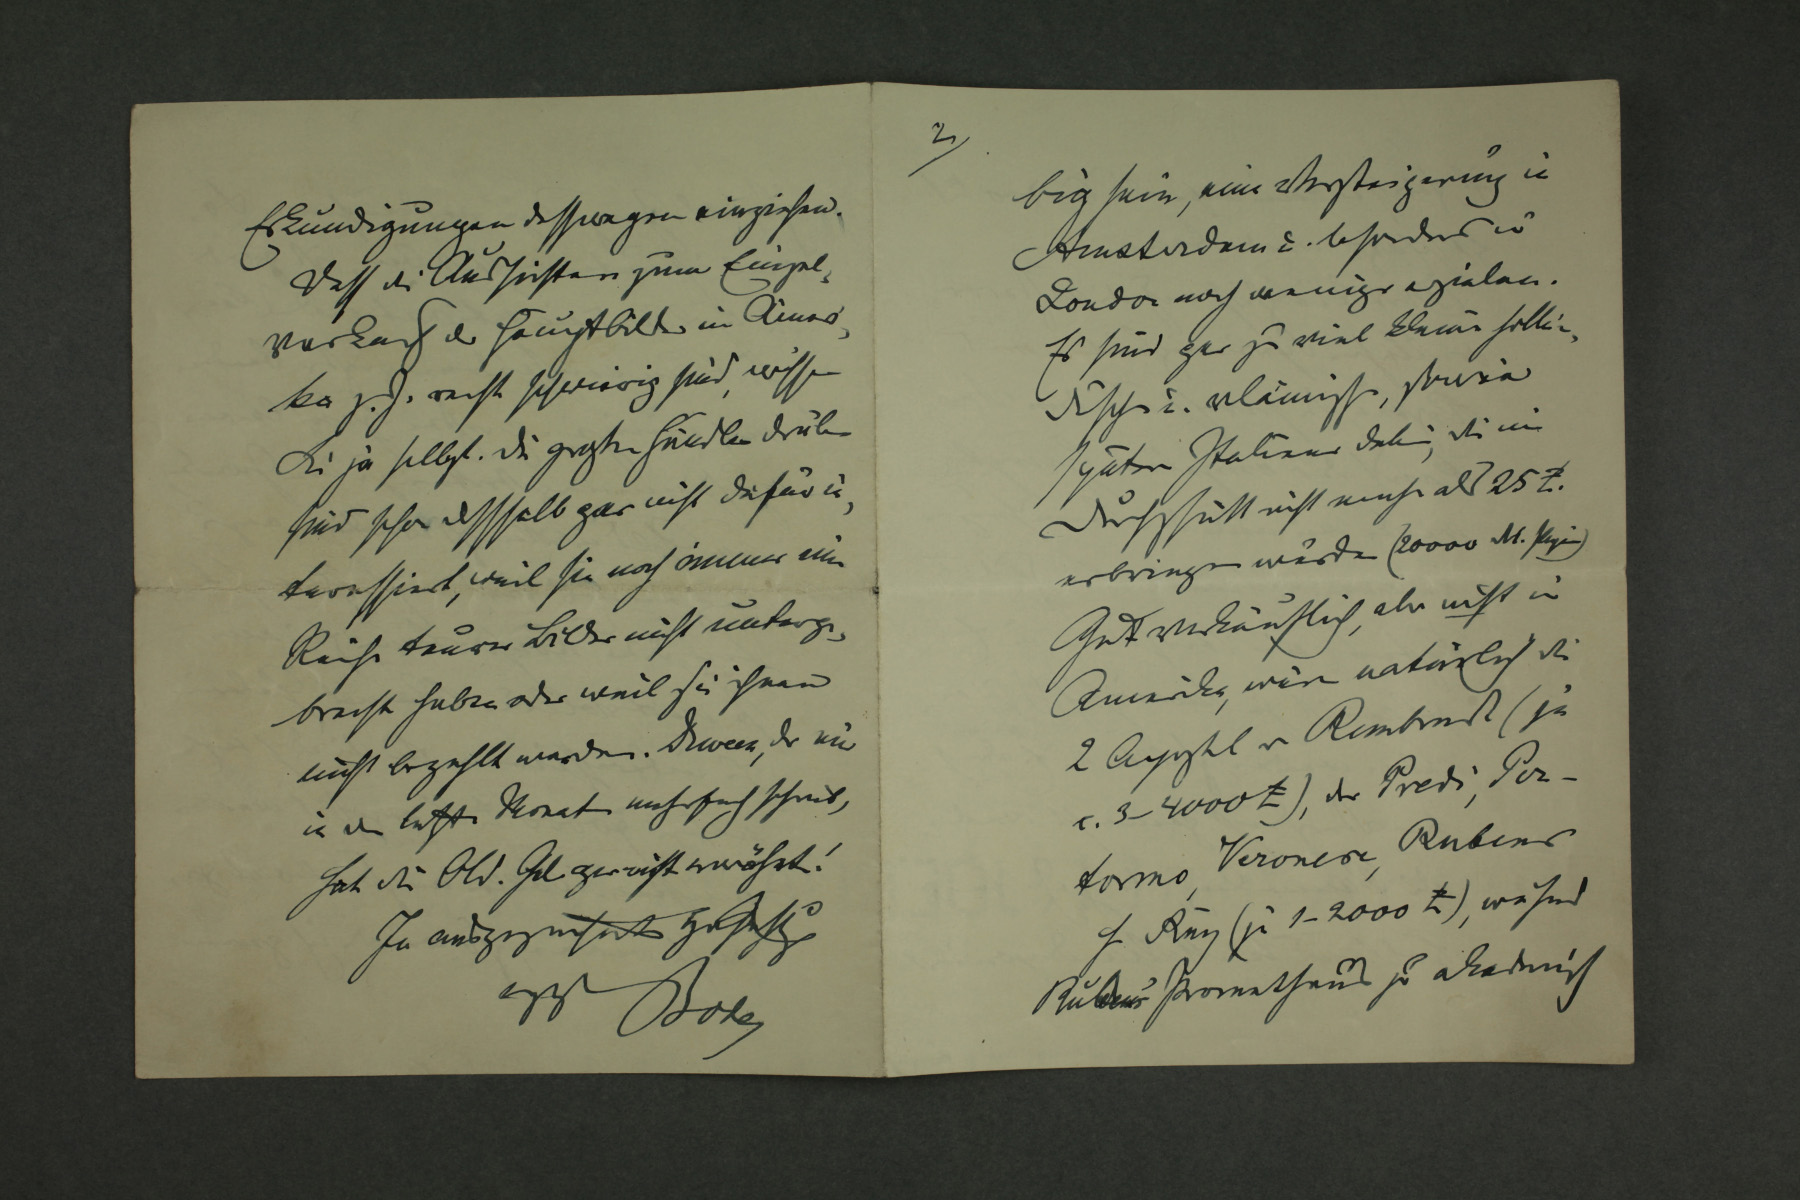 Erkundigungen desswegen einziehen.
Dass die Aussichten zum Einzel-
verkauf der Hauptbilder in Ameri-
ka z. Z. recht schwierig sind, wissen
Sie ja selbst. Die grossen Händler drüben
sind schon desshalb gar nicht dafür in-
teressiert, weil sie noch immer eine
Reihe teurer Bilder nicht unterge-
bracht haben oder weil sie ihnen
nicht bezahlt werden. Duveen, der mir
in den letzten Monaten mehrfach schrieb,
hat die Old. Gal. gar nicht erwähnt!
In ausgezeichneter Hochachtung
Bode
2/
big sein, eine Versteigerung in
Amsterdam u. besonders in
London noch weniger erzielen.
Es sind gar zu viel kleine hollän-
dische u. vlämische, sowie
späte Italiener dabei, die im
Durchschnitt nicht mehr als 25 £.
erbringen würden (20000 M.
Gut verkäuflich, aber nicht in
Amerika, wären natürlich die
2 Apostel v Rembrandt (je
c. 3-4000 £), der Predi, Pon-
tormo, Veronese, Rubens
(je 1-2000 £), während
Rubens Prometheus zu akademisch